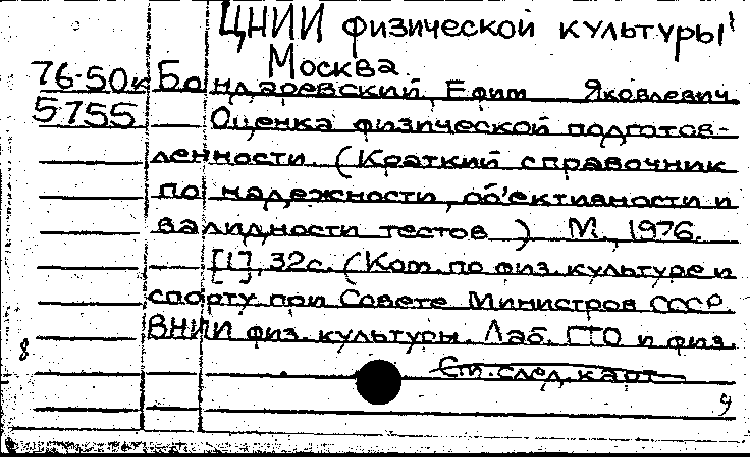 ЦНИИ физической культуры
Москва.
76-50к Бондаревский, Ефим Яковлевич.
5755 Оценка физической подготов-
ленности. (Краткий справочник
по надежности, об'ективности и
валидности тестов). М., 1976.
[1], 32с. (Ком. по физ. культуре и
спорту при Совете Министров СССР.
ВНИИ физ. культуры. Лаб. ГТО и физ.
8
См. след. карт
9